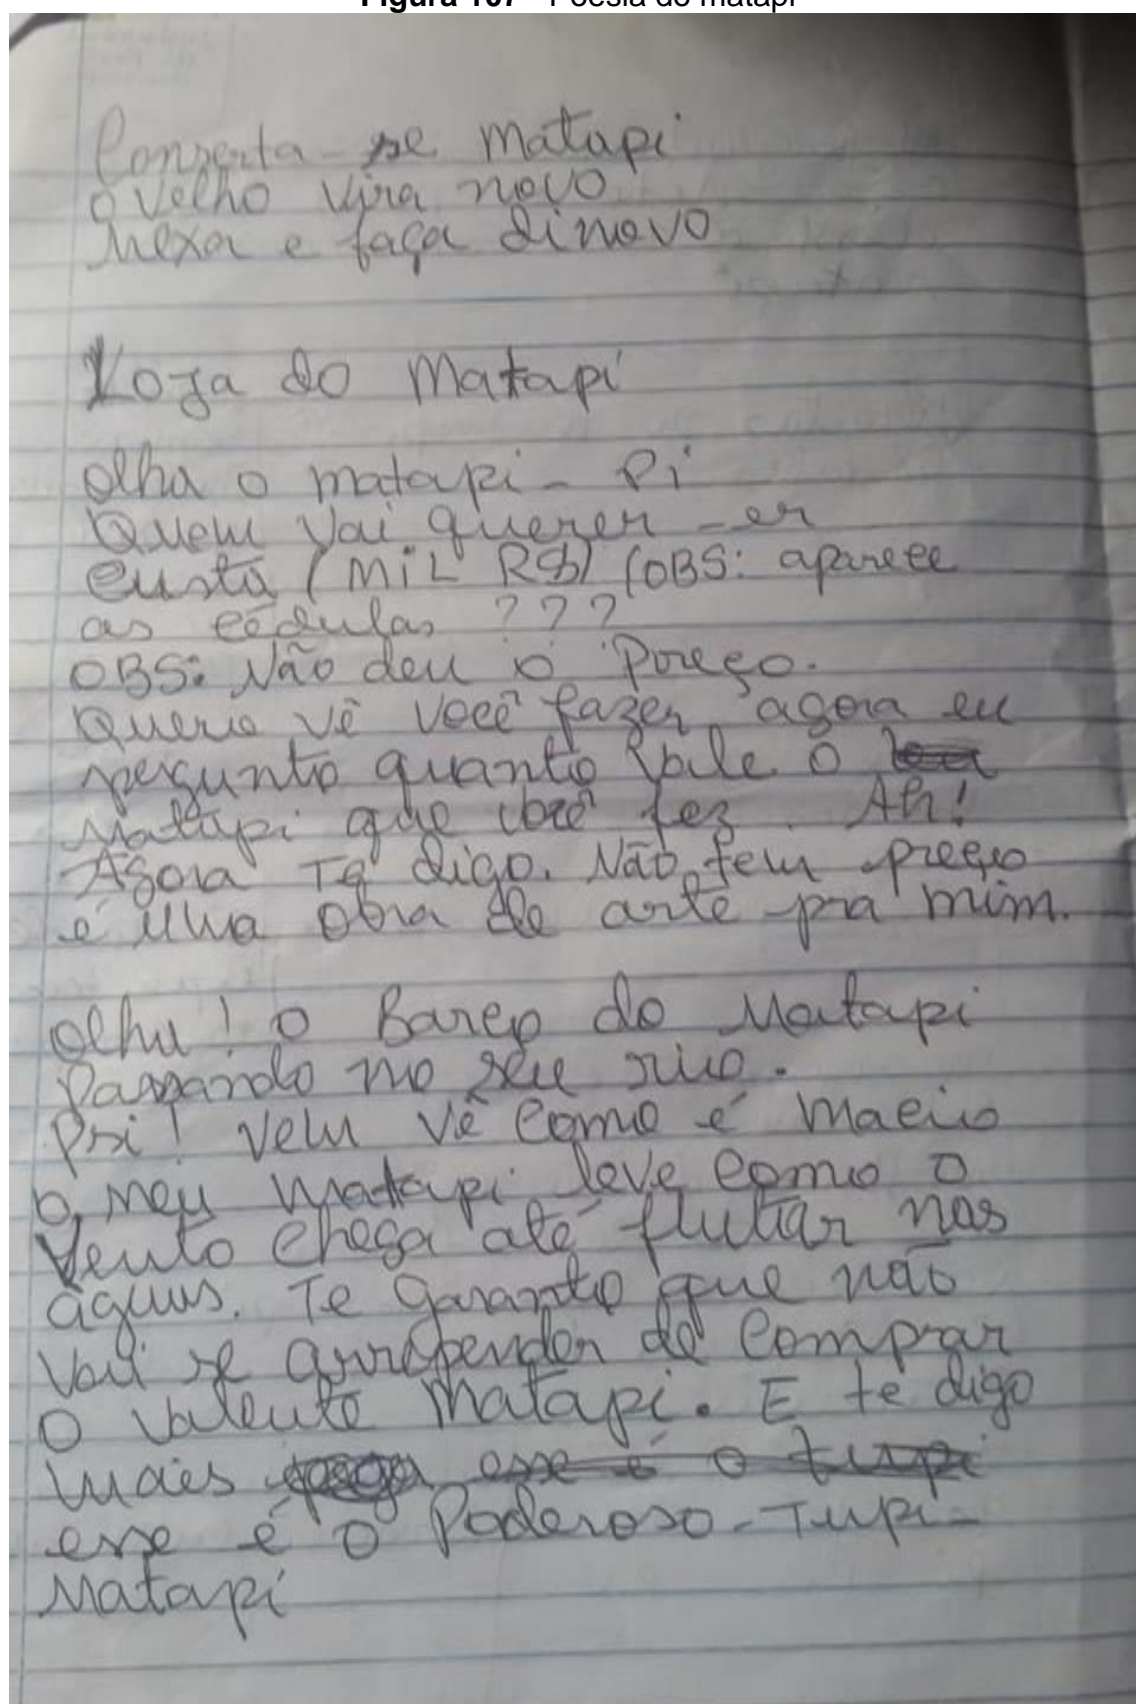 Figura 107 - Poesia do matapi
Conserta-se matapi
o velho vira novo
Mexa e faça dinovo
Loja do Matapi
Olha o matapi - Pi
Quem vai querer - er
custa (MiL R$) (OBS: aparece
as cédulas ???
OBS: Não deu o Poreço.
Quero vê você fazer, agora eu
pergunto quanto vale o
Matapi que você fez. Ah!
Agora Te digo. Não tem preço
é uma obra de arte pra mim.
Olha! o Barco do Matapi
Passando no seu rio.
Psi! Vem vê como é macio
o meu matapi, leve como o
Vento chega até flutuar nas
águas. Te garanto que não
vai se arrepender de comprar
o valente Matapi. E te digo
mais esse é o tupi
esse é o Poderoso-Tupi-
Matapi